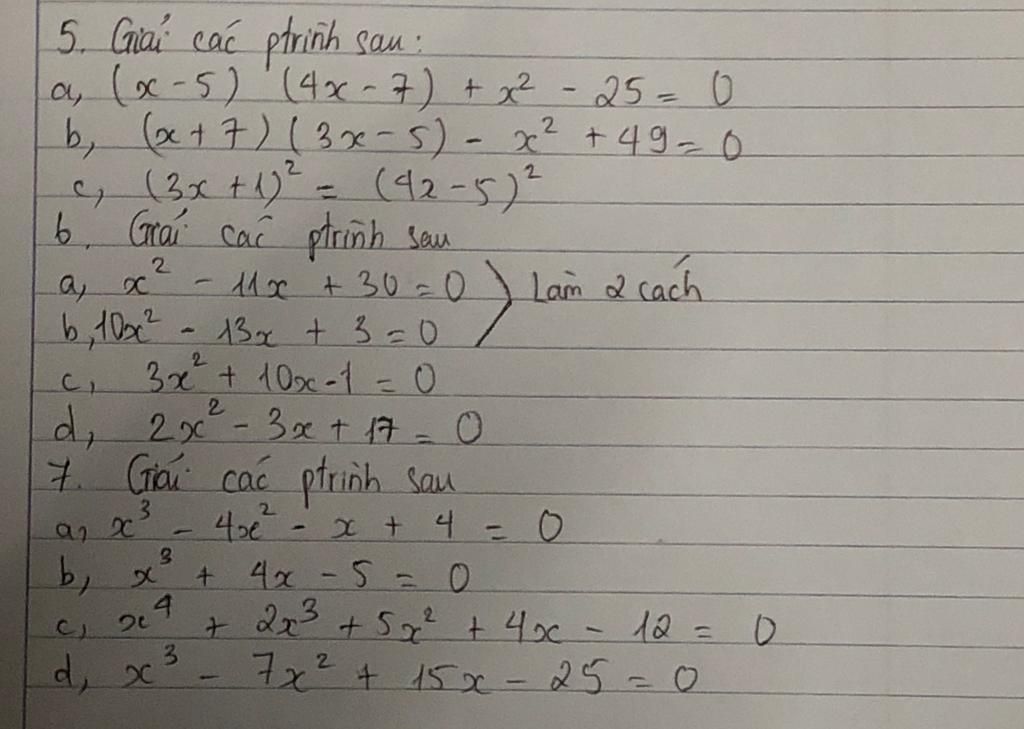 5. Giải các ptrình sau:
a, (x-5) (4x-7) + x² - 25 = 0
b, (x+7)(3x-5) - x² + 49 = 0
c, (3x+1)² = (4x-5)²
6. Giải các ptrình sau
a, x² - 11x + 30 = 0 } Làm 2 cách
b, 10x² - 13x + 3 = 0
c, 3x² + 10x - 1 = 0
d, 2x² - 3x + 17 = 0
7. Giải các ptrình sau
a, x³ - 4x² - x + 4 = 0
b, x³ + 4x - 5 = 0
c, x⁴ + 2x³ + 5x² + 4x - 12 = 0
d, x³ - 7x² + 15x - 25 = 0